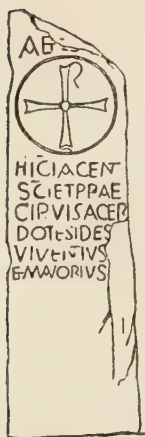 AE
HICIACENT
SC̄IETPPAE
CIPVISACER
DOTESIDES
VIVENTIVS
ETMAVORIVS